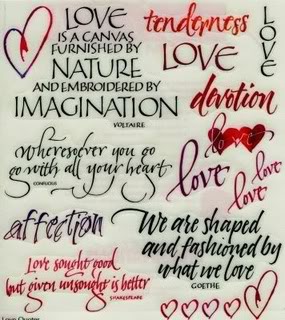 LOVE
IS A CANVAS
FURNISHED BY
NATURE
AND EMBROIDERED BY
IMAGINATION
VOLTAIRE
tenderness
LOVE
LOVE
devotion
love
wheresoever you go
go with all your heart
CONFUCIUS
love
love
love
affection
We are shaped
and fashioned by
what we love
GOETHE
Love sought good
but given unsought is better
SHAKESPEARE
Love Quotes